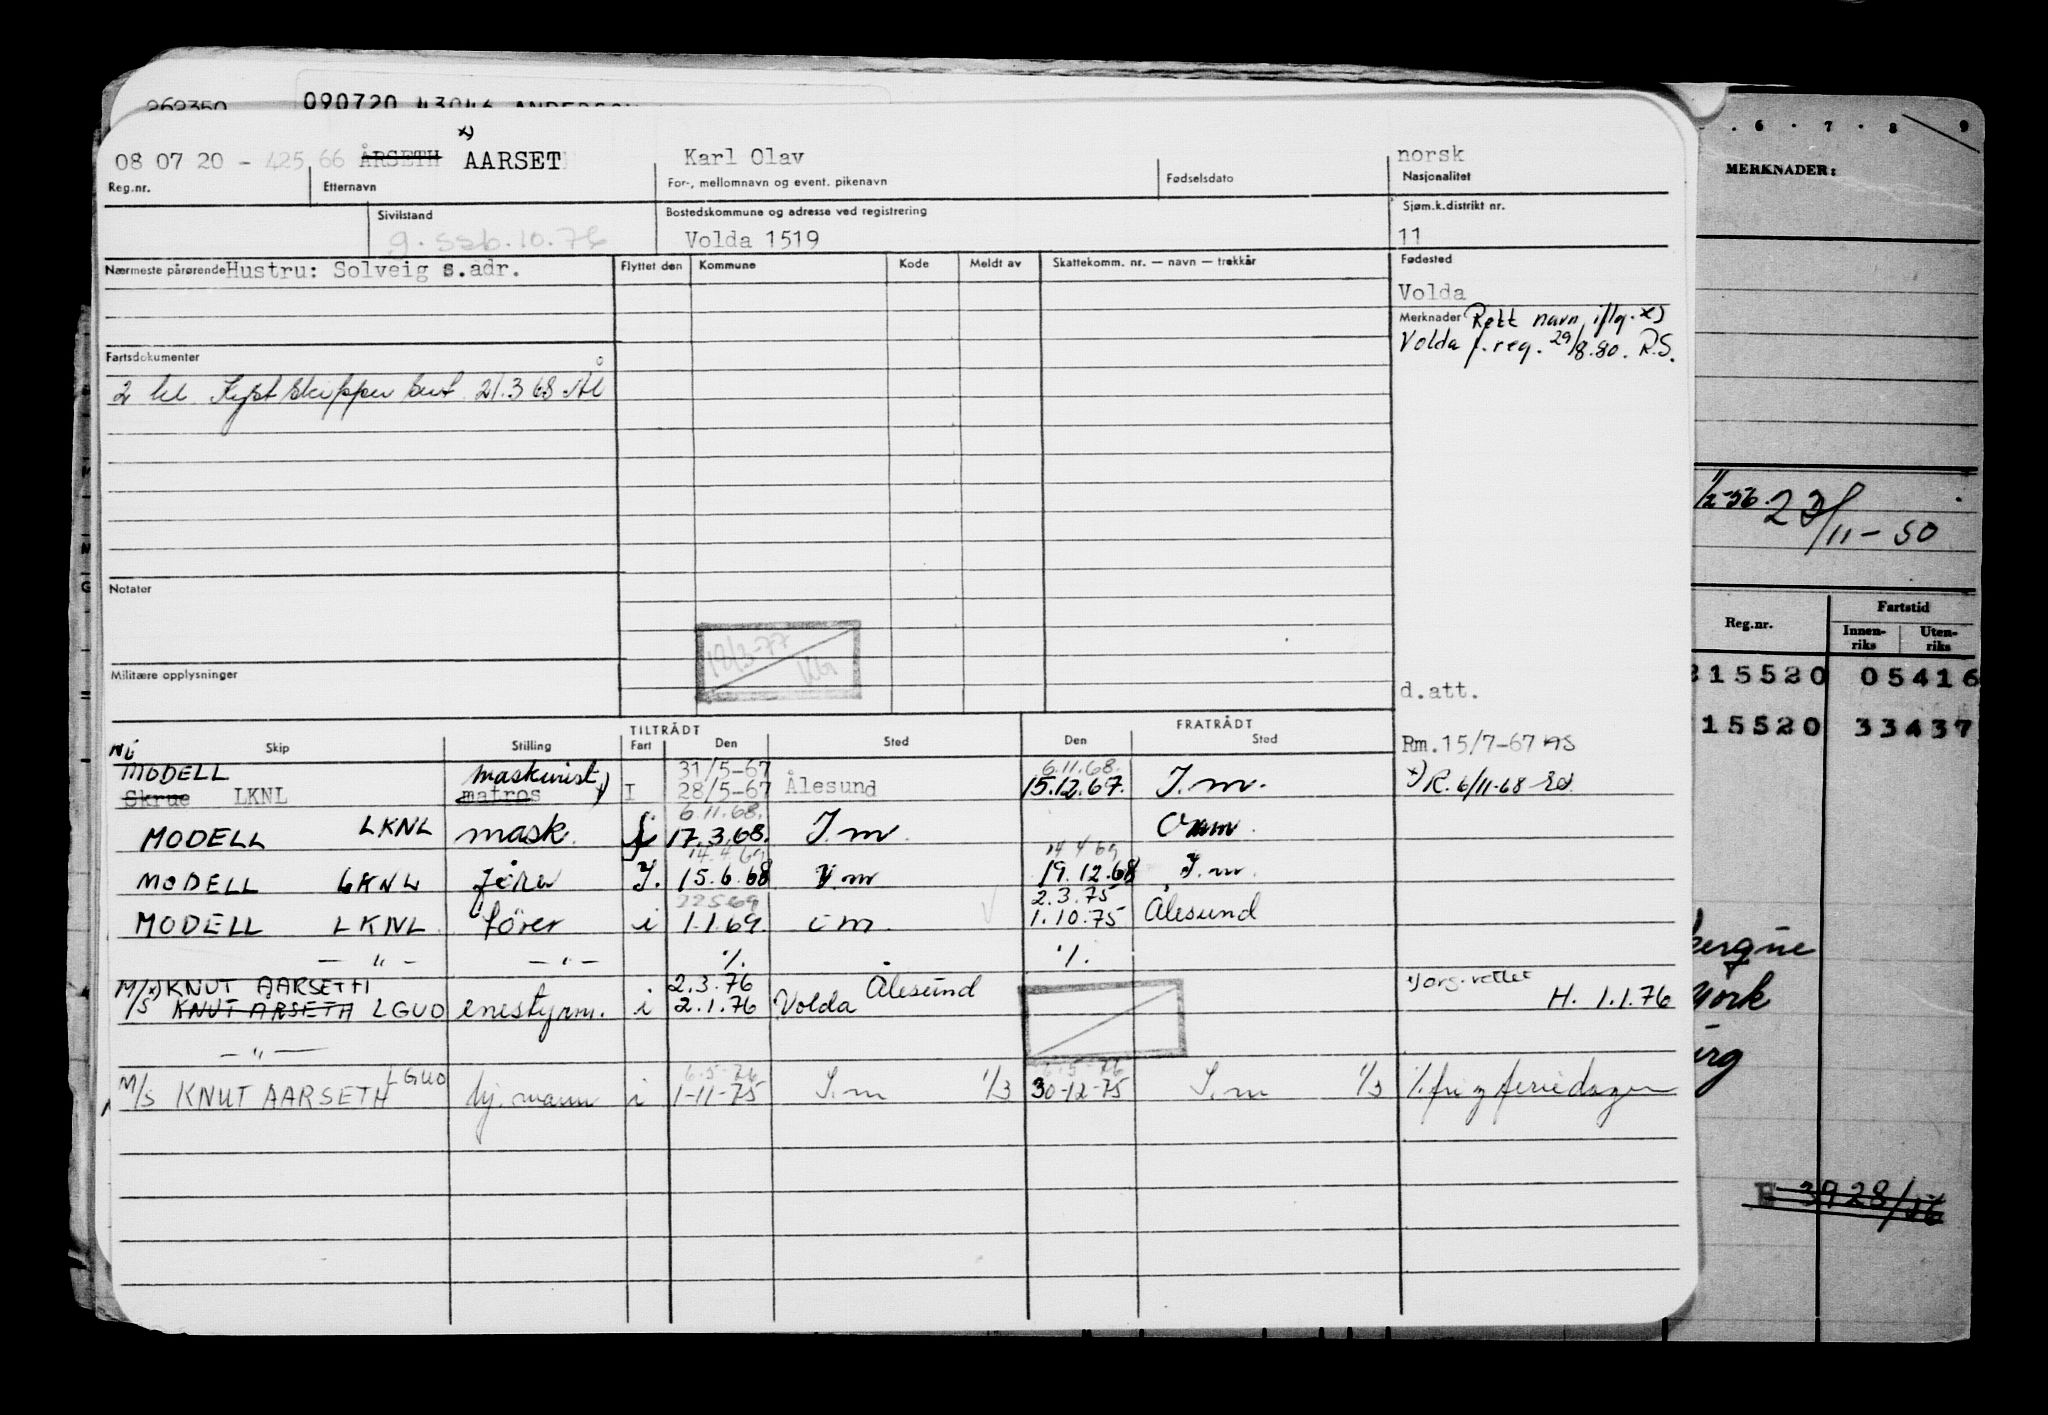 090720 43046
x)
08 07 20 - 42566 ÅRSETH AARSET Karl Olav norsk
Reg.nr. Etternavn For-, mellomnavn og event. pikenavn Fødselsdato Nasjonalitet
Sivilstand Bostedskommune og adresse ved registrering Sjøm.k.distrikt nr.
Volda 1519 11
Nærmeste pårørende Hustru: Solveig s.adr. Flyttet den Kommune Kode Meldt av Skattekomm. nr. — navn — trekkår Fødested
Volda
Merknader Rett navn iflg. x)
Volda f.reg. 29/8.80. R.S.
Fartsdokumenter
2 kl. Kystskipper sert 21.3 68
Notater
Militære opplysninger
d.att.
TILTRÅDT FRATRÅDT
Skip Stilling Fart Den Sted Den Sted Rm.15/7-67 AS
MODELL maskinist x) 31/5-67 6.11.68.
Skrue LKNL matros I 28/5-67 Ålesund 15.12.67. I.m. x) R. 6/11-68
6.11.68.
MODELL LKNL mask. i 17.3.68. I.m.
14.4.69 14 4 69
MODELL LKNL fører I. 15.6.68 I.m 19.12.68 I.m.
22569 2.3.75
MODELL LKNL fører i 1.1.69. i m. 1.10.75 Ålesund
— " — — " — %. %.
M/S x) KNUT AARSETH 2.3.76 Ålesund
KNUT ÅRSETH LGUO enestyrm. i 2.1.76 Volda H. 1.1.76
— " —
LGUO 6.5-76 6.5-76
M/S KNUT AARSETH i 1-11-75 I.m 1/3 30-12-75 I.m 1/3 %. fri og feriedager
6 . 7 . 8 9
MERKNADER:
1/2-56. 23/11-50
Reg.nr. Fartstid
Innen-riks Uten-riks
315520 05416
15520 33437
E 3928/56